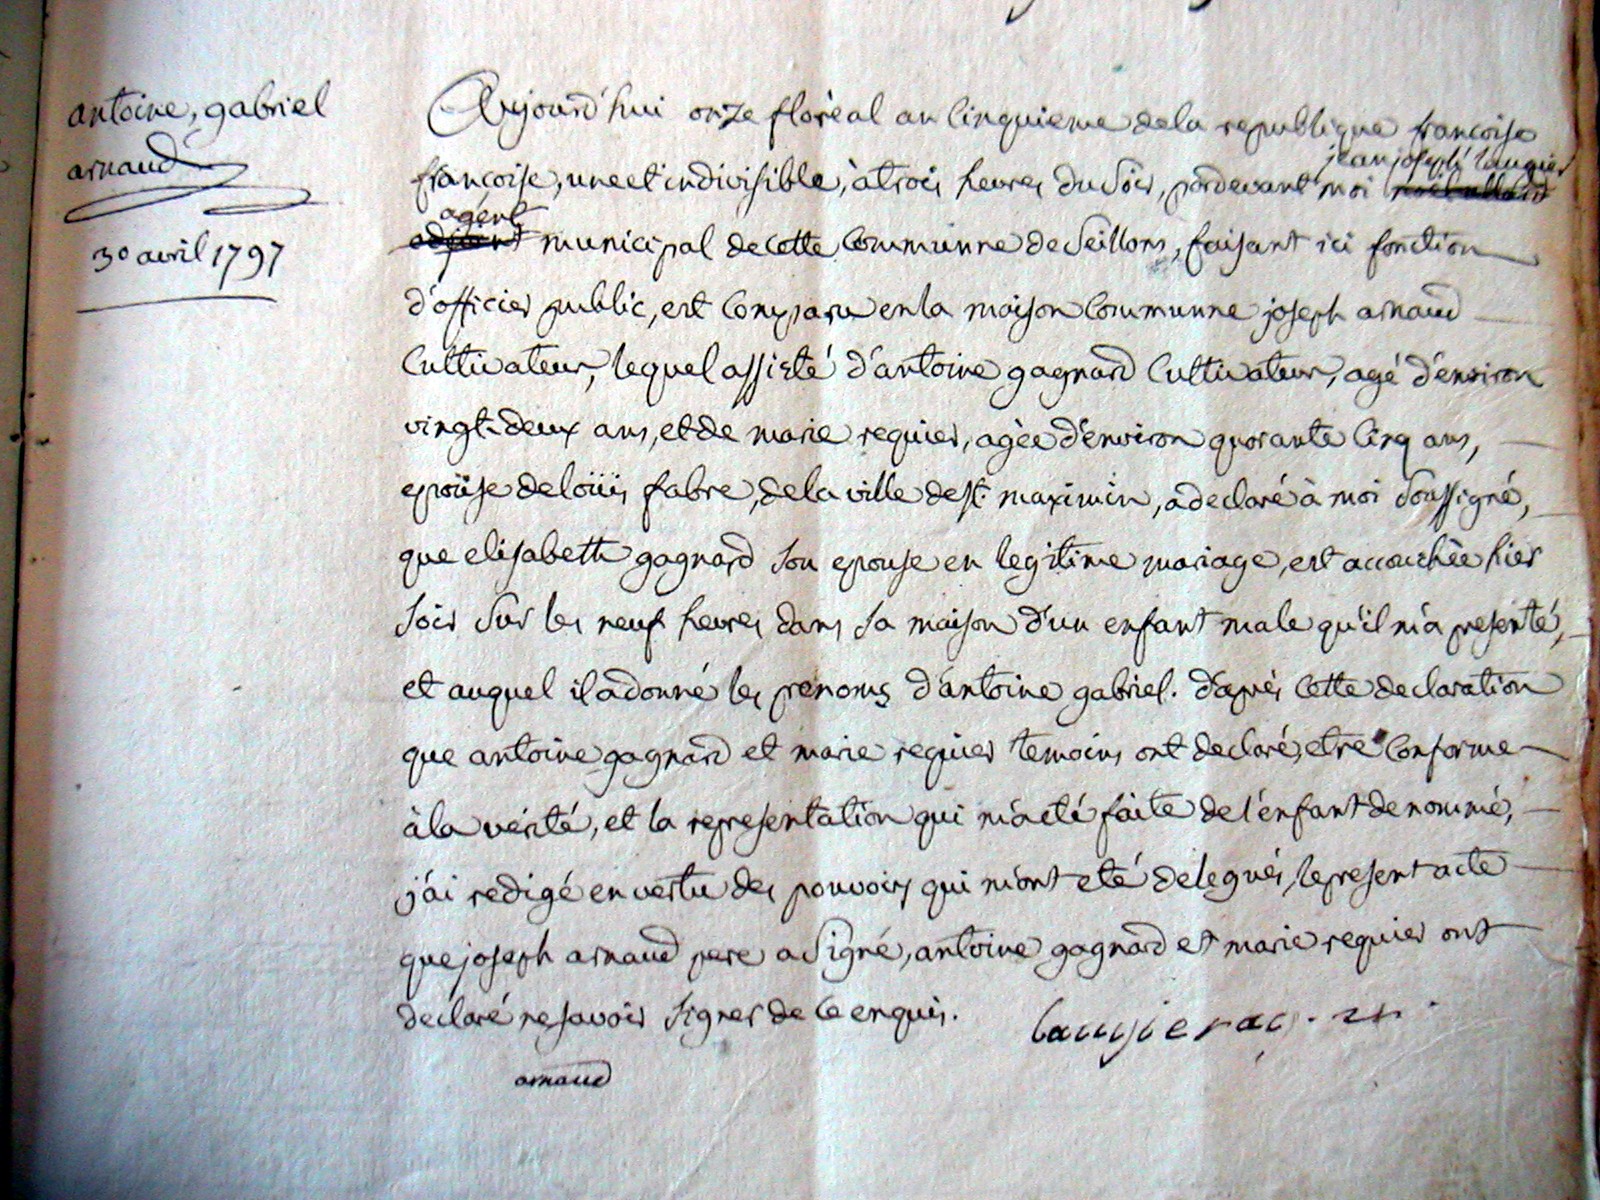 antoine, gabriel
arnaud
30 avril 1797
Aujourd'hui onze floréal an cinquieme de la republique francoise
francoise, une et indivisible, à trois heures du soir, pardevant moi jean joseph laugier
agent municipal de cette communne de Seillons, faisant ici fonction
d'officier public, est comparu en la maison communne joseph arnaud
cultivateur, lequel assisté d'antoine gagnard cultivateur, agé d'environ
vingt-deux ans, et de marie requier, agée d'environ quarante cinq ans,
epouse de loüis fabre, de la ville de st. maximin, a declaré à moi soussigné,
que elisabeth gagnard son epouse en legitime mariage, est accouchée hier
soir sur les neuf heures dans sa maison d'un enfant male qu'il m'a presenté,
et auquel il a donné les prenoms d'antoine gabriel. d'aprés cette declaration
que antoine gagnard et marie requier temoins ont declaré, etre conforme
à la verité, et la representation qui m'a eté faite de l'enfant denommé,
j'ai redigé en vertu des pouvoirs qui m'ont eté delegués, le present acte
que joseph arnaud pere a signé, antoine gagnard et marie requier ont
declaré ne savoir signer de ce enquis.
laugier ag.
arnaud